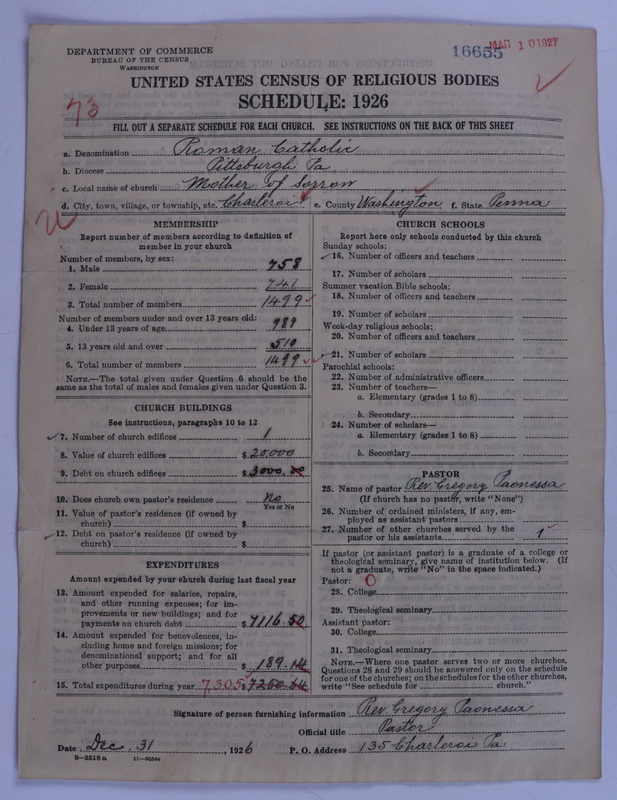 DEPARTMENT OF COMMERCE
BUREAU OF THE CENSUS
WASHINGTON
16655
MAR 10 1927
UNITED STATES CENSUS OF RELIGIOUS BODIES
SCHEDULE: 1926
73
FILL OUT A SEPARATE SCHEDULE FOR EACH CHURCH. SEE INSTRUCTIONS ON THE BACK OF THIS SHEET
a. Denomination Roman Catholic
b. Diocese Pittsburgh Pa
c. Local name of church Mother of Sorrow
d. City, town, village, or township, etc. Charleroi e. County Washington f. State Penna
MEMBERSHIP
Report number of members according to definition of
member in your church
Number of members, by sex:
1. Male 758
2. Female 741
3. Total number of members 1499
Number of members under and over 13 years old:
4. Under 13 years of age 989
5. 13 years old and over 510
6. Total number of members 1499
NOTE.—The total given under Question 6 should be the
same as the total of males and females given under Question 3.
CHURCH BUILDINGS
See instructions, paragraphs 10 to 12
7. Number of church edifices 1
8. Value of church edifices $20,000
9. Debt on church edifices $3000.00
10. Does church own pastor's residence No
Yes or No
11. Value of pastor's residence (if owned by
church) $
12. Debt on pastor's residence (if owned by
church) $
EXPENDITURES
Amount expended by your church during last fiscal year
13. Amount expended for salaries, repairs,
and other running expenses; for im-
provements or new buildings; and for
payments on church debt $7116.50
14. Amount expended for benevolences, in-
cluding home and foreign missions; for
denominational support; and for all
other purposes $189.14
15. Total expenditures during year 7305 $
CHURCH SCHOOLS
Report here only schools conducted by this church
Sunday schools:
16. Number of officers and teachers
17. Number of scholars
Summer vacation Bible schools:
18. Number of officers and teachers
19. Number of scholars
Week-day religious schools:
20. Number of officers and teachers
21. Number of scholars
Parochial schools:
22. Number of administrative officers
23. Number of teachers—
a. Elementary (grades 1 to 8)
b. Secondary
24. Number of scholars—
a. Elementary (grades 1 to 8)
b. Secondary
PASTOR
25. Name of pastor Rev. Gregory Paonessa
(If church has no pastor, write "None")
26. Number of ordained ministers, if any, em-
ployed as assistant pastors
27. Number of other churches served by the
pastor or his assistants 1
If pastor (or assistant pastor) is a graduate of a college or
theological seminary, give name of institution below. (If
not a graduate, write "No" in the space indicated.)
Pastor: 0
28. College
29. Theological seminary
Assistant pastor:
30. College
31. Theological seminary
NOTE.—Where one pastor serves two or more churches,
Questions 28 and 29 should be answered only on the schedule
for one of the churches; on the schedules for the other churches,
write "See schedule for church."
Signature of person furnishing information Rev. Gregory Paonessa
Official title Pastor
Date Dec. 31 1926 P. O. Address 135 Charleroi Pa
8—5518a